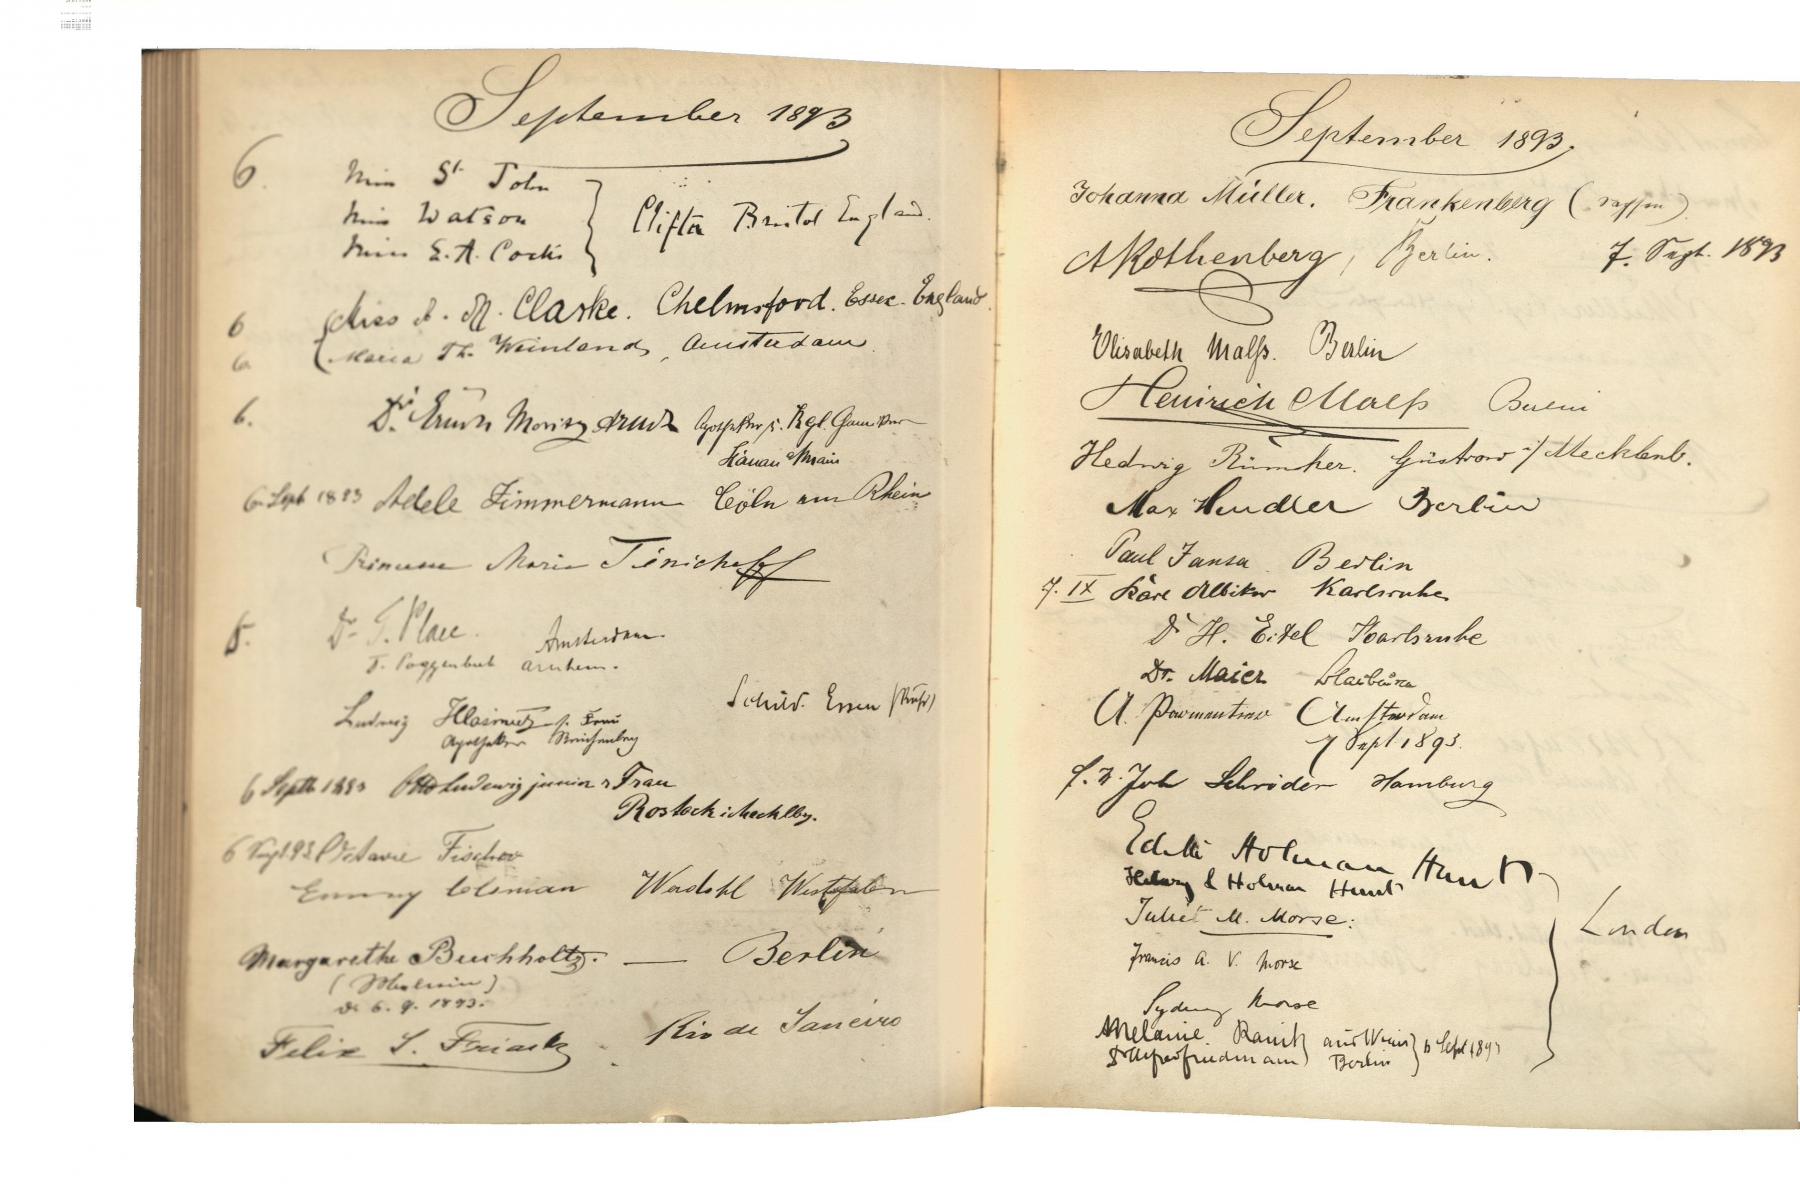 September 1893
6. Miss St. John
Miss Watson
Miss E. A. Cocks
Clifton Bristol England.
6 Miss A. M. Clarke. Chelmsford. Essex. England
6. Maria Th. Weinland, Amsterdam
6. Dr. Erich Moritz Apotheker
Hanau a/Main
6. Sept 1893 Adele Zimmermann Cöln am Rhein
Princesse Marie Ténicheff
Dr. T. Place. Amsterdam.
Arnhem.
Schild. Essen (Ruhr)
Ludwig Frau
Apotheker
6 Septb 1893 Otto Ludewig junior & Frau
Rostock i Mecklbg.
6 Sept 93 Octavie Fischer
Emmy Colsman Werdohl Westfalen
Margarethe Buchholtz. — Berlin
d. 6. 9. 1893.
Felix S. Rio de Janeiro
September 1893.
Johanna Müller. Frankenberg
A Rothenberg, Berlin. 7. Sept. 1893
Elisabeth Malß. Berlin
Heinrich Malß Berlin
Hedwig Güstrow i/Mecklenb.
Max Berlin
Paul Jansa Berlin
7. IX Karl Albiker Karlsruhe
Dr H. Eitel Karlsruhe
Dr. Maier
A. Parmentier Amsterdam
7 Sept 1893.
Joh Schröder Hamburg
Edith Holman Hunt
Hilary L Holman Hunt
Juliet M. Morse.
London
Francis A. V. Morse
Sydney Morse
Melanie aus Wien 6 Sept 1893
Dr Alfred Friedmann Berlin